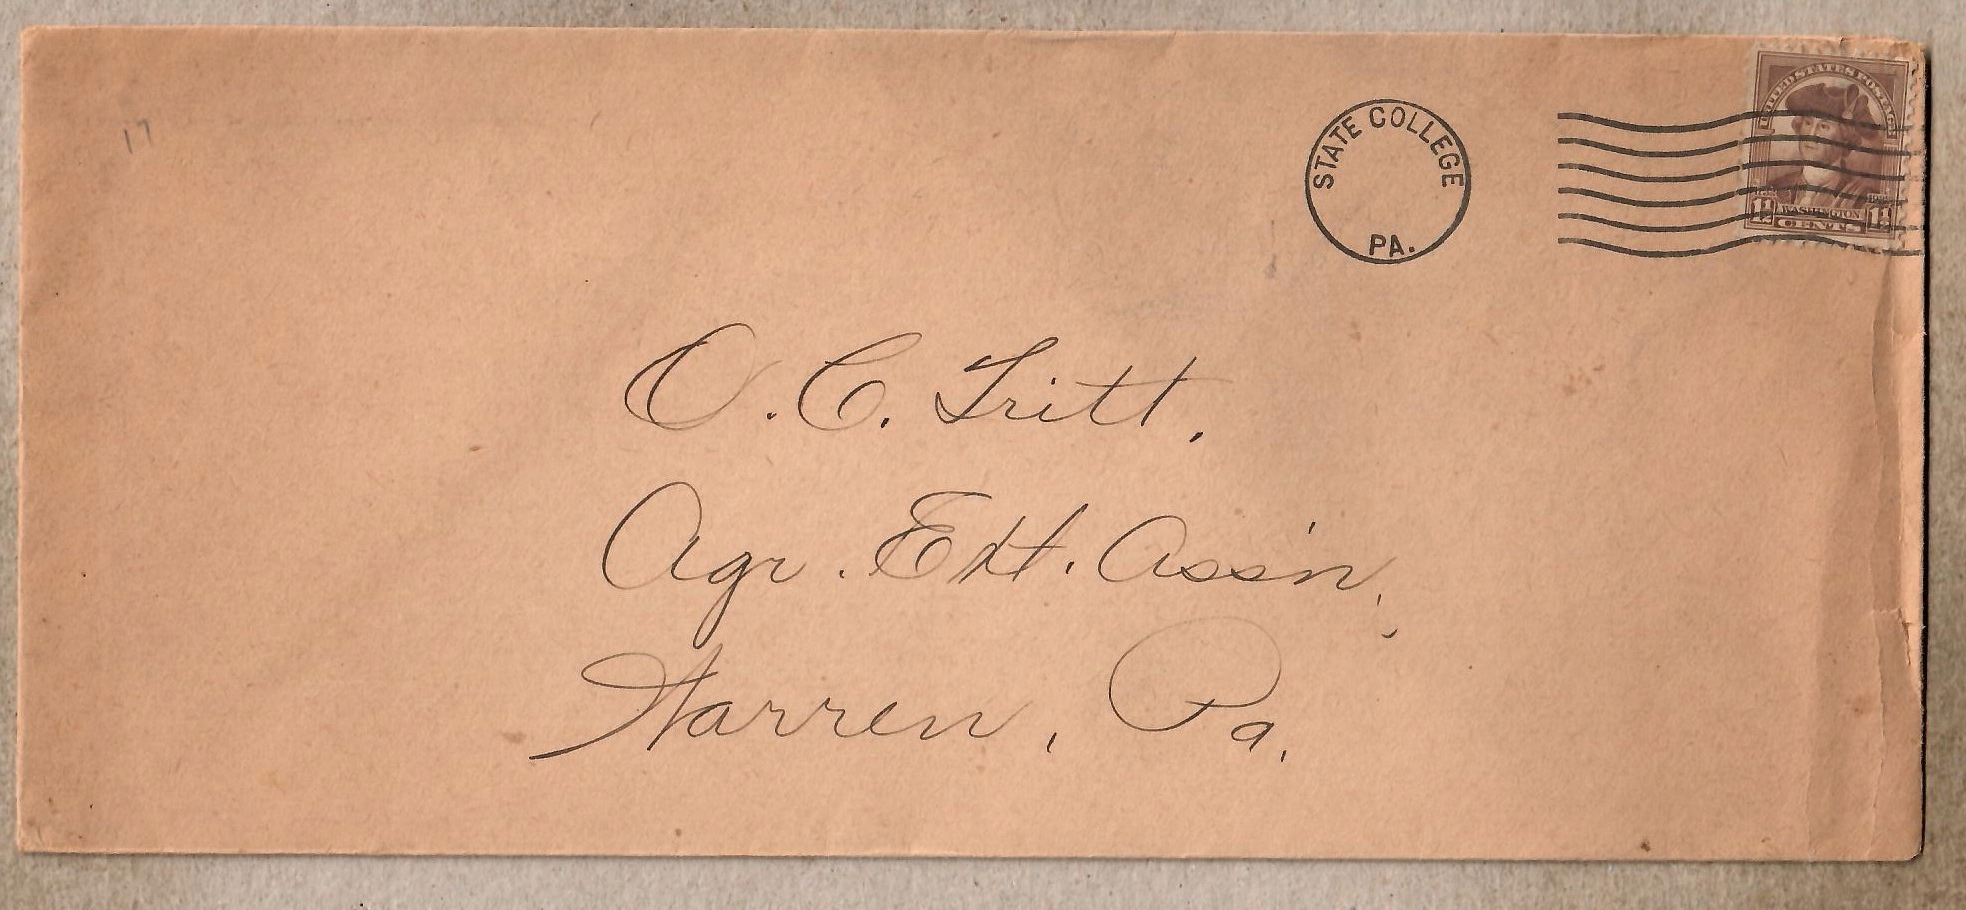 17
STATE COLLEGE
PA.
UNITED STATES POSTAGE
1½ WASHINGTON 1½
CENTS
O. C. Tritt.
Agr. Ext. Ass'n,
Warren, Pa.